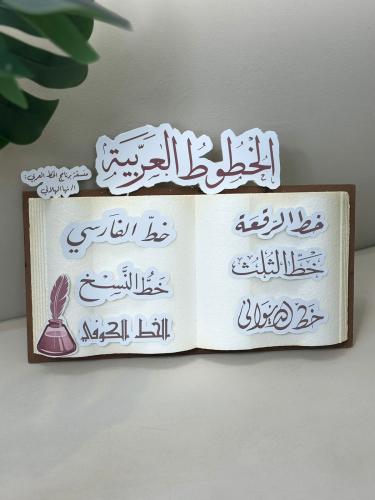 الخطوط العربية
منسقة برنامج الخط العربي:
أ. نها الهلالي
خط الرقعة
خط الثلث
خط الديواني
خطّ الفارسي
خطّ النَّسخ
الخط الكوفي